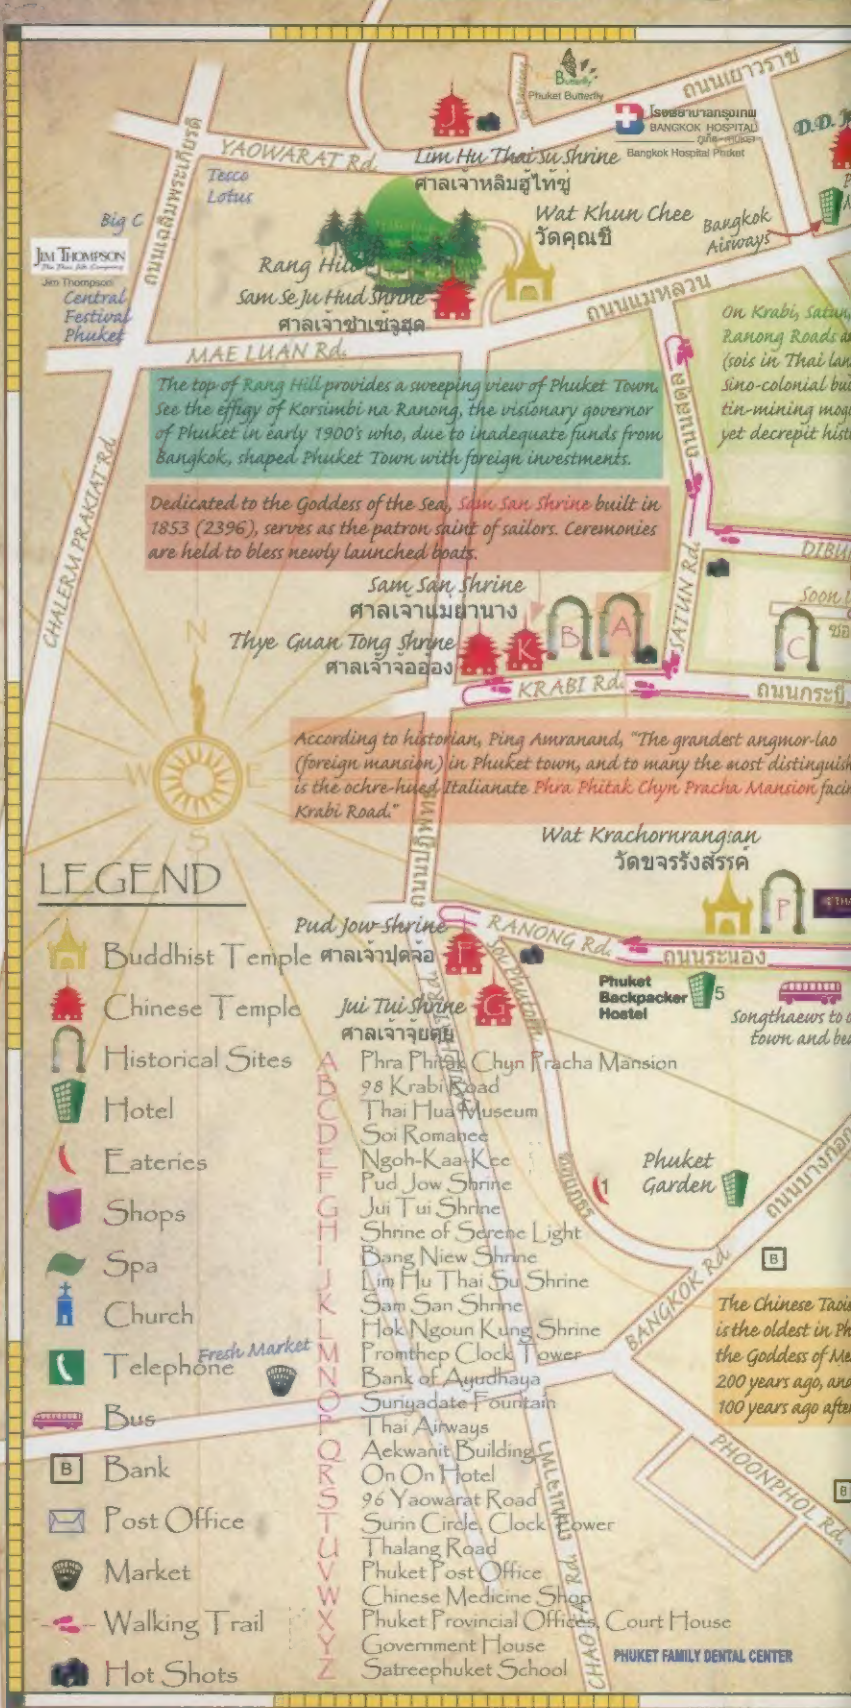 ถนนเยาวราช
Butterfly
Phuket Butterfly
โรงพยาบาลกรุงเทพ
BANGKOK HOSPITAL
ภูเก็ต-PHUKET
Bangkok Hospital Phuket
D.D.
J
YAOWARAT Rd.
Lim Hu Thai Su Shrine
ศาลเจ้าหลิมฮู้ไท้ซู่
Tesco
Lotus
ถนนเฉลิมพระเกียรติ
Big C
Wat Khun Chee
วัดคุณชี
Bangkok
Aisways
JIM THOMPSON
The Thai Silk Company
Jim Thompson
Central
Festival
Phuket
Rang Hill
Sam Se Ju Hud Shrine
ศาลเจ้าซำเซ้จูฮุด
ถนนแม่หลวน
MAE LUAN Rd.
On Krabi, Satun,
Ranong Roads
(sois in Thai
Sino-colonial
tin-mining
yet decrepit
The top of Rang Hill provides a sweeping view of Phuket Town.
See the effigy of Korsimbi na Ranong, the visionary governor
of Phuket in early 1900's who, due to inadequate funds from
Bangkok, shaped Phuket Town with foreign investments.
ถนนสตูล
CHALERM PRAKIAT Rd.
Dedicated to the Goddess of the Sea, Sam San Shrine built in
1853 (2396), serves as the patron saint of sailors. Ceremonies
are held to bless newly launched boats.
DIBU
SATUN Rd.
Soon
ซอ
Sam San Shrine
ศาลเจ้าแม่ย่านาง
Thye Guan Tong Shrine
ศาลเจ้าจ้อออง
K
B
A
C
KRABI Rd.
ถนนกระบี่
N
W
E
S
According to historian, Ping Amranand, "The grandest angmor-lao
(foreign mansion) in Phuket town, and to many the most distinguish
is the ochre-hued Italianate Phra Phitak Chyn Pracha Mansion facin
Krabi Road."
ถนนปฏิพัทธ์
Wat Krachornrangsan
วัดขจรรังสรรค์
P
THA
LEGEND
Pud Jow Shrine
ศาลเจ้าปุดจ้อ
F
RANONG Rd.
ถนนระนอง
Soi Phutorn
Jui Tui Shrine
ศาลเจ้าจุ้ยตุ่ย
G
Phuket
Backpacker
Hostel
5
Songthaews to
town and
Buddhist Temple
Chinese Temple
Historical Sites
Hotel
Eateries
Shops
Spa
Church
Telephone
Bus
B Bank
Post Office
Market
Walking Trail
Hot Shots
A Phra Phitak Chyn Pracha Mansion
B 98 Krabi Road
C Thai Hua Museum
D Soi Romanee
E Ngoh-Kaa-Kee
F Pud Jow Shrine
G Jui Tui Shrine
H Shrine of Serene Light
I Bang Niew Shrine
J Lim Hu Thai Su Shrine
K Sam San Shrine
L Hok Ngoun Kung Shrine
M Promthep Clock Tower
N Bank of Ayudhaya
O Suriyadate Fountain
P Thai Airways
Q Aekwanit Building
R On On Hotel
S 96 Yaowarat Road
T Surin Circle, Clock Tower
U Thalang Road
V Phuket Post Office
W Chinese Medicine Shop
X Phuket Provincial Offices, Court House
Y Government House
Z Satreephuket School
Fresh Market
1
Phuket
Garden
ถนนบางกอก
BANGKOK Rd.
B
The Chinese Taois
is the oldest in Ph
the Goddess of Me
200 years ago, and
100 years ago after
PHOONPHOL Rd.
B
CHAOFA Rd.
PHUKET FAMILY DENTAL CENTER